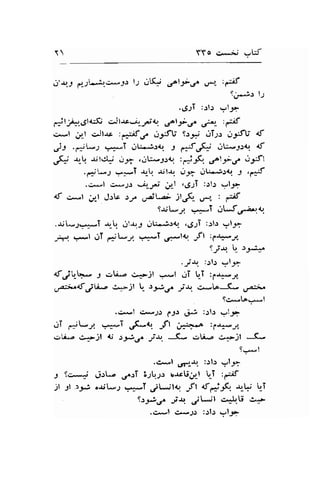 کتاب نخست ۳۳۵ ۲۱
گفتم: پس می‌خواهی نیکان را دوست بشماریم و بدان
را دشمن؟
جواب داد: آری.
گفتم: یعنی می‌خواهی به تعریف عدالت نکته‌ای بیفزائیم
که تاکنون در آن نبود؟ تاکنون می‌گفتیم: عدالت این است
که به دوستان نیکی کنیم و به دشمنان آسیب برسانیم، ولی
اکنون می‌خواهی بگوئیم: به دوستان، چون نیک‌اند باید نیکی
کنیم، و به دشمنان چون بداند باید آسیب برسانیم.
جواب داد: آری، این تعریف درست است.
گفتم: پس یکی از خصائص مرد عادل این است که
به بعضی کسان آسیب برساند؟
جواب داد: آری، به دشمنان و بدان باید آسیب‌رساند.
پرسیدم: اگر به اسبی آسیب برسانیم آن اسب بهتر
می‌شود یا بدتر؟
جواب داد: بدتر.
پرسیدم: آیا آن اسب ازحیث صفات و سجایائی‌که
مختص سگ‌هاست بدتر می‌شود یا ازحیث صفاتی‌که‌مختص
اسب‌هاست؟
جواب داد: شق دوم درست است.
پرسیدم: همچنین اگر به‌سگی آسیب برسانیم آن
سگ ازحیث صفات سگ بدتر می‌شود نه ازحیث صفات
اسب؟
جواب داد: بدیهی است.
گفتم: آیا این‌قاعده دربارهٔ آدمی صادق نیست؟ و
آیا نباید بگوئیم‌که اگر به‌انسانی آسیب رسانده شود او از
حیث قابلیت انسانی بدتر می‌شود؟
جواب داد: درست است.